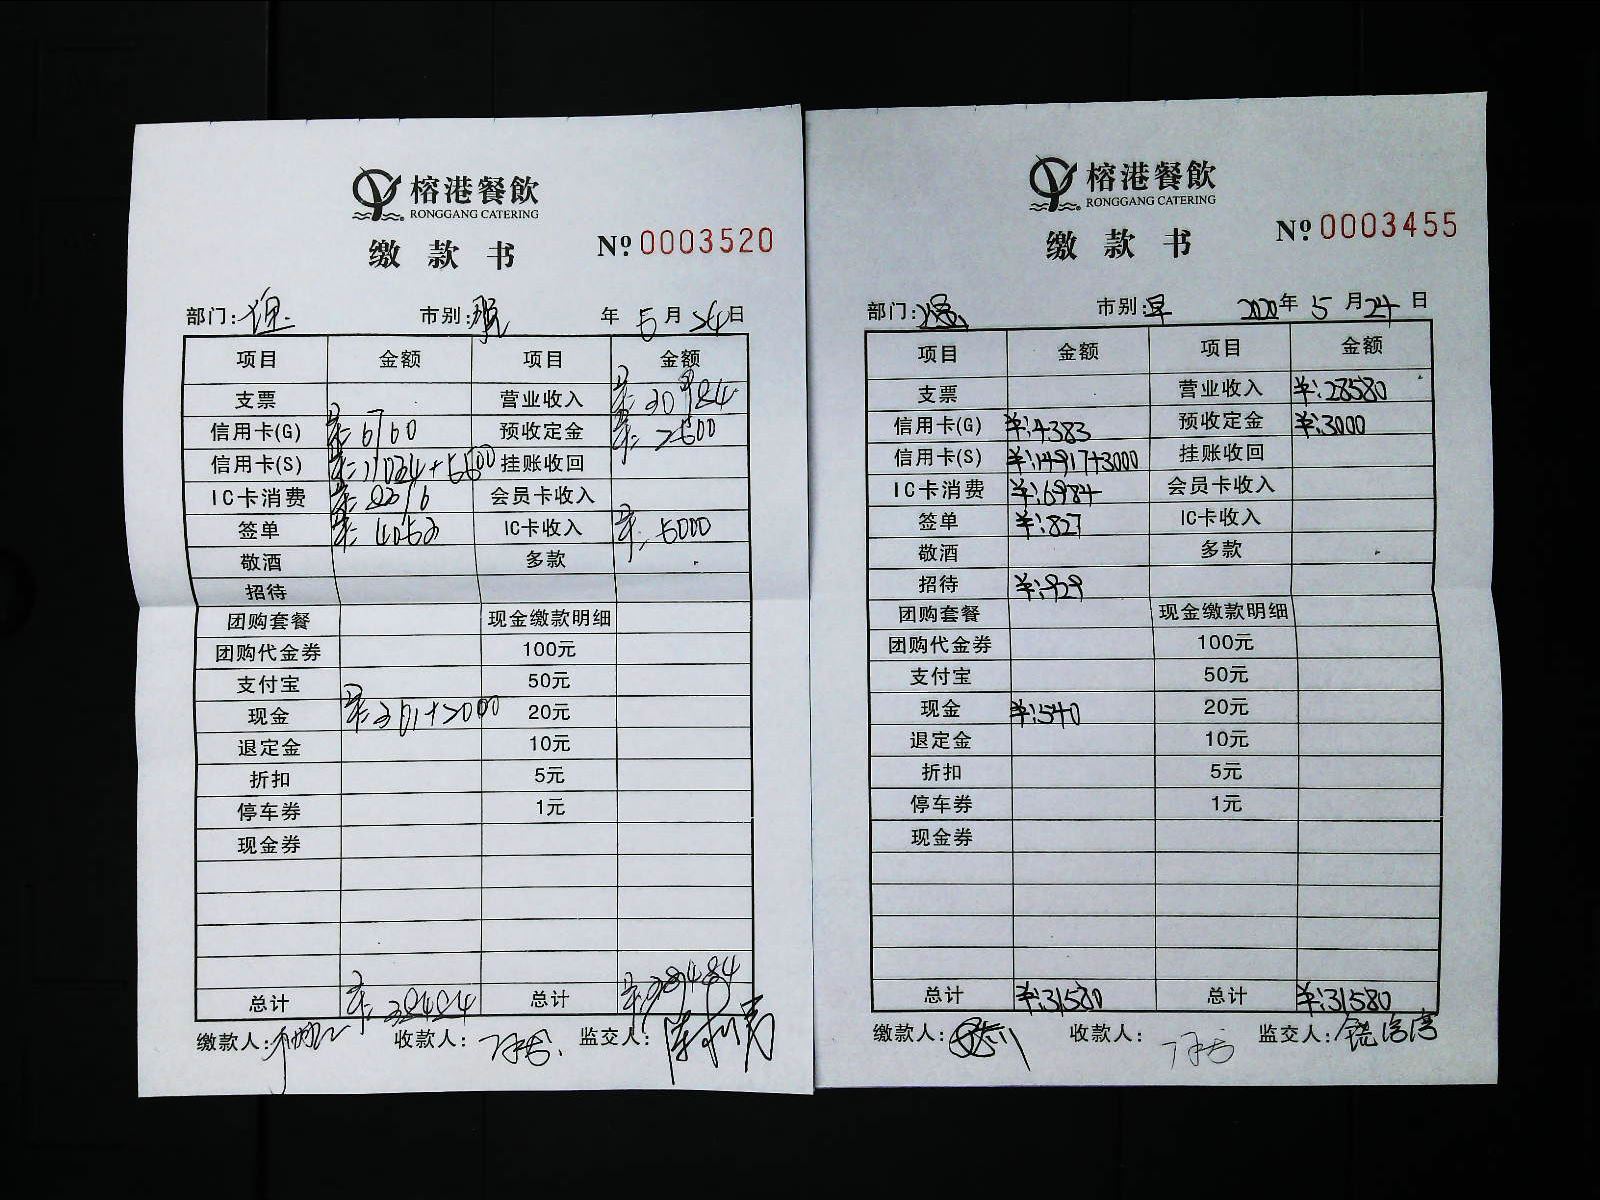 榕港餐飲
RONGGANG CATERING
缴款书
Nº 0003520
部门: 市别: 年5月24日
项目 金额 项目 金额
支票 营业收入
信用卡(G) ¥:6760 预收定金 ¥:2500
信用卡(S) ¥:11034+5500 挂账收回
IC卡消费 会员卡收入
签单 IC卡收入 ¥:5000
敬酒 多款
招待
团购套餐 现金缴款明细
团购代金券 100元
支付宝 50元
现金 20元
退定金 10元
折扣 5元
停车券 1元
现金券
总计 ¥:38484 总计 ¥:38484
缴款人: 收款人: 监交人:
榕港餐飲
RONGGANG CATERING
缴款书
Nº 0003455
部门: 市别:早 2020年5月24日
项目 金额 项目 金额
支票 营业收入 ¥:28580
信用卡(G) ¥:4383 预收定金 ¥:3000
信用卡(S) ¥:14917+3000 挂账收回
IC卡消费 ¥:6984 会员卡收入
签单 ¥:827 IC卡收入
敬酒 多款
招待 ¥:929
团购套餐 现金缴款明细
团购代金券 100元
支付宝 50元
现金 ¥:540 20元
退定金 10元
折扣 5元
停车券 1元
现金券
总计 ¥:31580 总计 ¥:31580
缴款人: 收款人: 监交人: